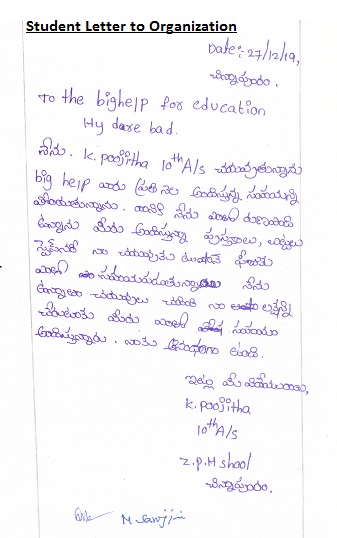 Student Letter to Organization
Date:- 27/12/19,
చిన్నాపురం.
To the bighelp for education
Hy dare bad.
నేను. K. poojitha 10th A/s చదువుతున్నాను
big help వారు ప్రతి నెల అందిస్తున్న సహాయాన్ని
పొందుతున్నాను. వారికి నేను చాలా రుణపడి
ఉన్నాను మీరు అందిస్తున్న పుస్తకాలు,
నా చదువుకు
చాలా సహాయపడుతున్నాయి నేను
ఉన్నతంగా చదువులు చదివి నా లక్ష్యాన్ని
చేరుటకు మీరు చాలా సహాయం
అందిస్తున్నారు. నాకు ఆనందంగా ఉంది.
ఇట్లు మీ విధేయురాలు,
K. poojitha
10th A/s
Z.p.H shool
చిన్నాపురం.